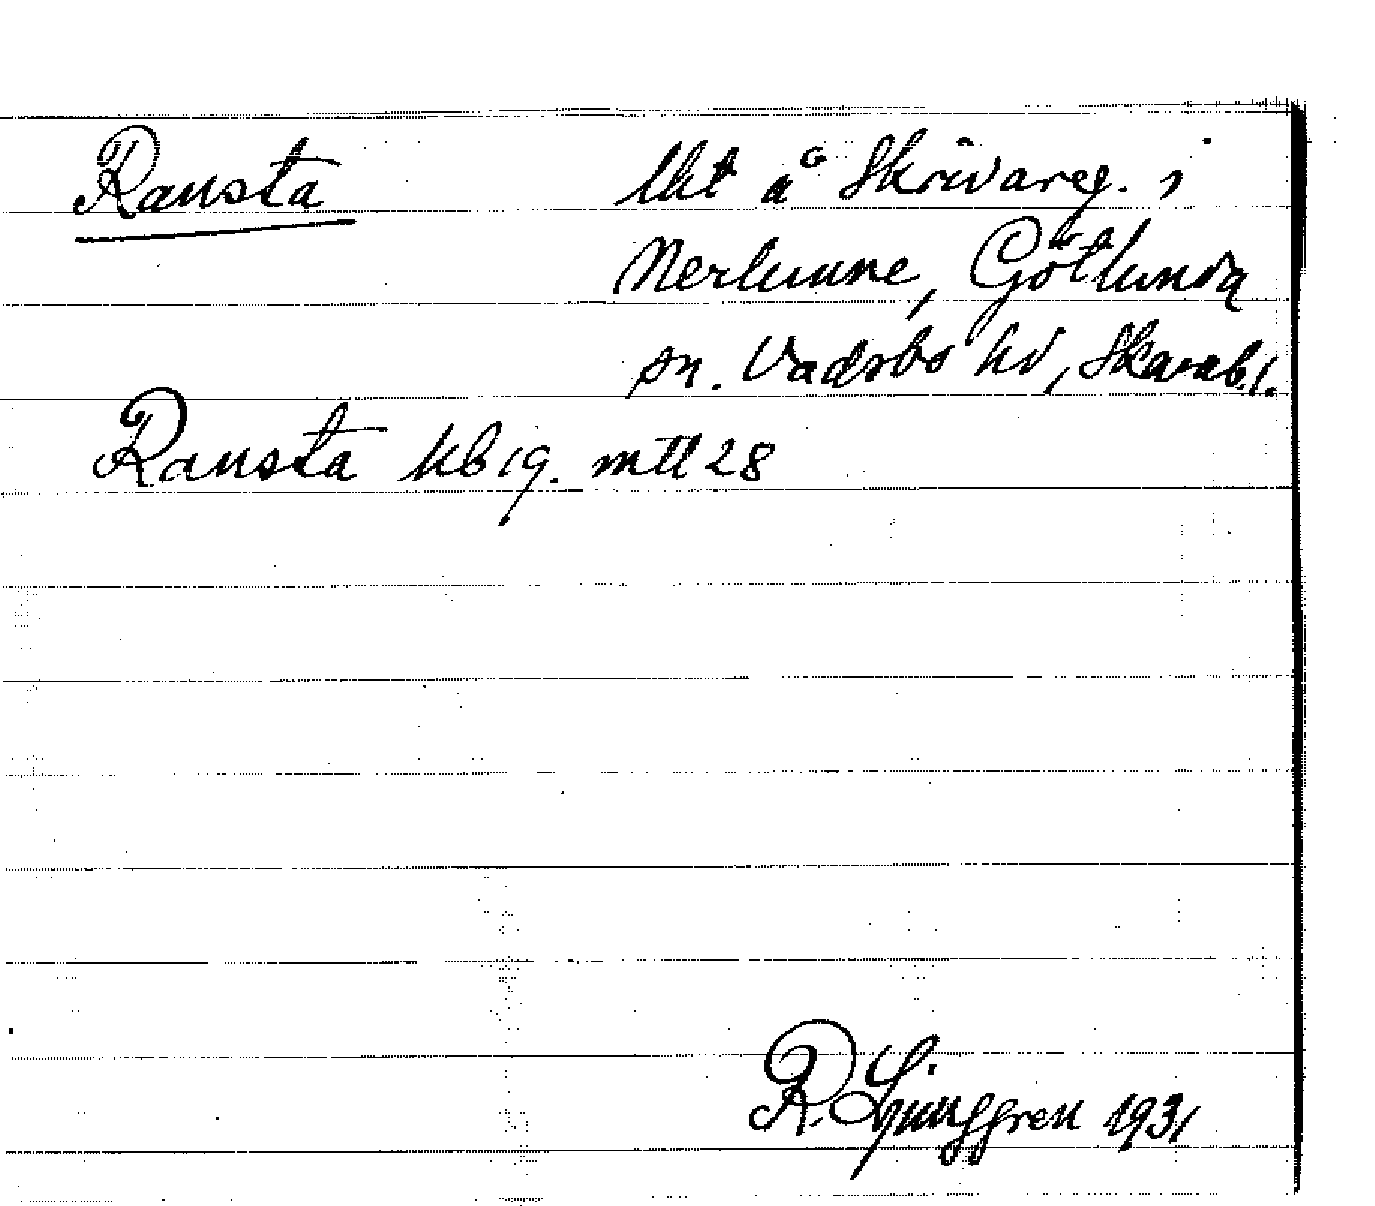 Ransta lht å Skrivareg. i
Nerlunne, Götlunda
sn. Vadsbo hd, Skarab.l.
Ransta kb 19. mtl 28
R. Ljunggren 1931